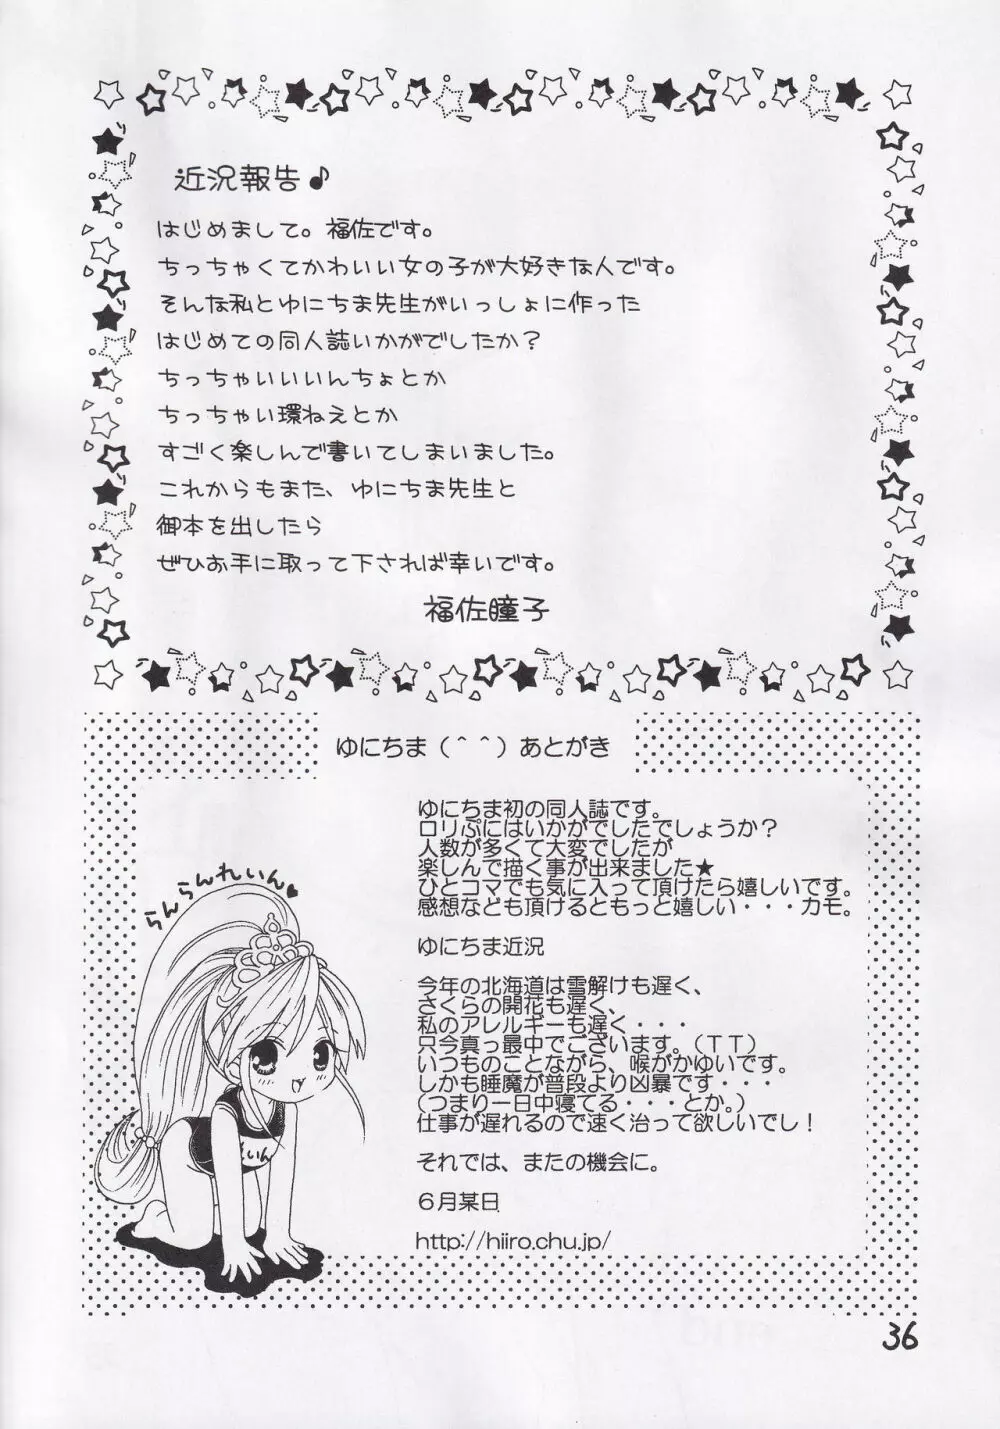 近況報告♪
はじめまして。福佐です。
ちっちゃくてかわいい女の子が大好きな人です。
そんな私とゆにちま先生がいっしょに作った
はじめての同人誌いかがでしたか？
ちっちゃいいいんちょとか
ちっちゃい環ねえとか
すごく楽しんで書いてしまいました。
これからもまた、ゆにちま先生と
御本を出したら
ぜひお手に取って下されば幸いです。
福佐瞳子
ゆにちま（＾＾）あとがき
ゆにちま初の同人誌です。
ロリぷにはいかがでしたでしょうか？
人数が多くて大変でしたが
楽しんで描く事が出来ました★
ひとコマでも気に入って頂けたら嬉しいです。
感想なども頂けるともっと嬉しい・・・カモ。
ゆにちま近況
今年の北海道は雪解けも遅く、
さくらの開花も遅く、
私のアレルギーも遅く・・・
只今真っ最中でございます。（ＴＴ）
いつものことながら、喉がかゆいです。
しかも睡魔が普段より凶暴です・・・
（つまり一日中寝てる・・・とか。）
仕事が遅れるので速く治って欲しいでし！
それでは、またの機会に。
６月某日
http://hiiro.chu.jp/
らんらんれいん♥
れいん
36